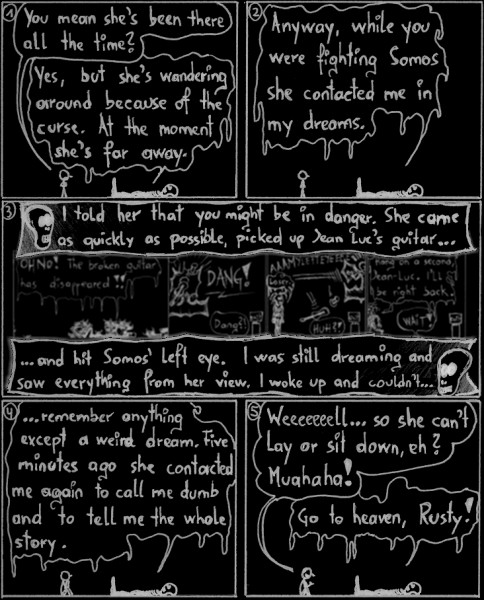 1
You mean she's been there
all the time?
Yes, but she's wandering
around because of the
curse. At the moment
she's far away.
2
Anyway, while you
were fighting Somos
she contacted me in
my dreams.
3
I told her that you might be in danger. She came
as quickly as possible, picked up Jean Luc's guitar...
OH NO! The broken guitar
has disappeared!!
DANG!
Dang?
Loser
HUH?!
a second,
Jean-Luc. I'll
be right back!
WAIT!
...and hit Somos' left eye. I was still dreaming and
saw everything from her view. I woke up and couldn't...
4
...remember anything
except a weird dream. Five
minutes ago she contacted
me again to call me dumb
and to tell me the whole
story.
5
Weeeeeeell... so she can't
lay or sit down, eh?
Muahaha!
Go to heaven, Rusty!